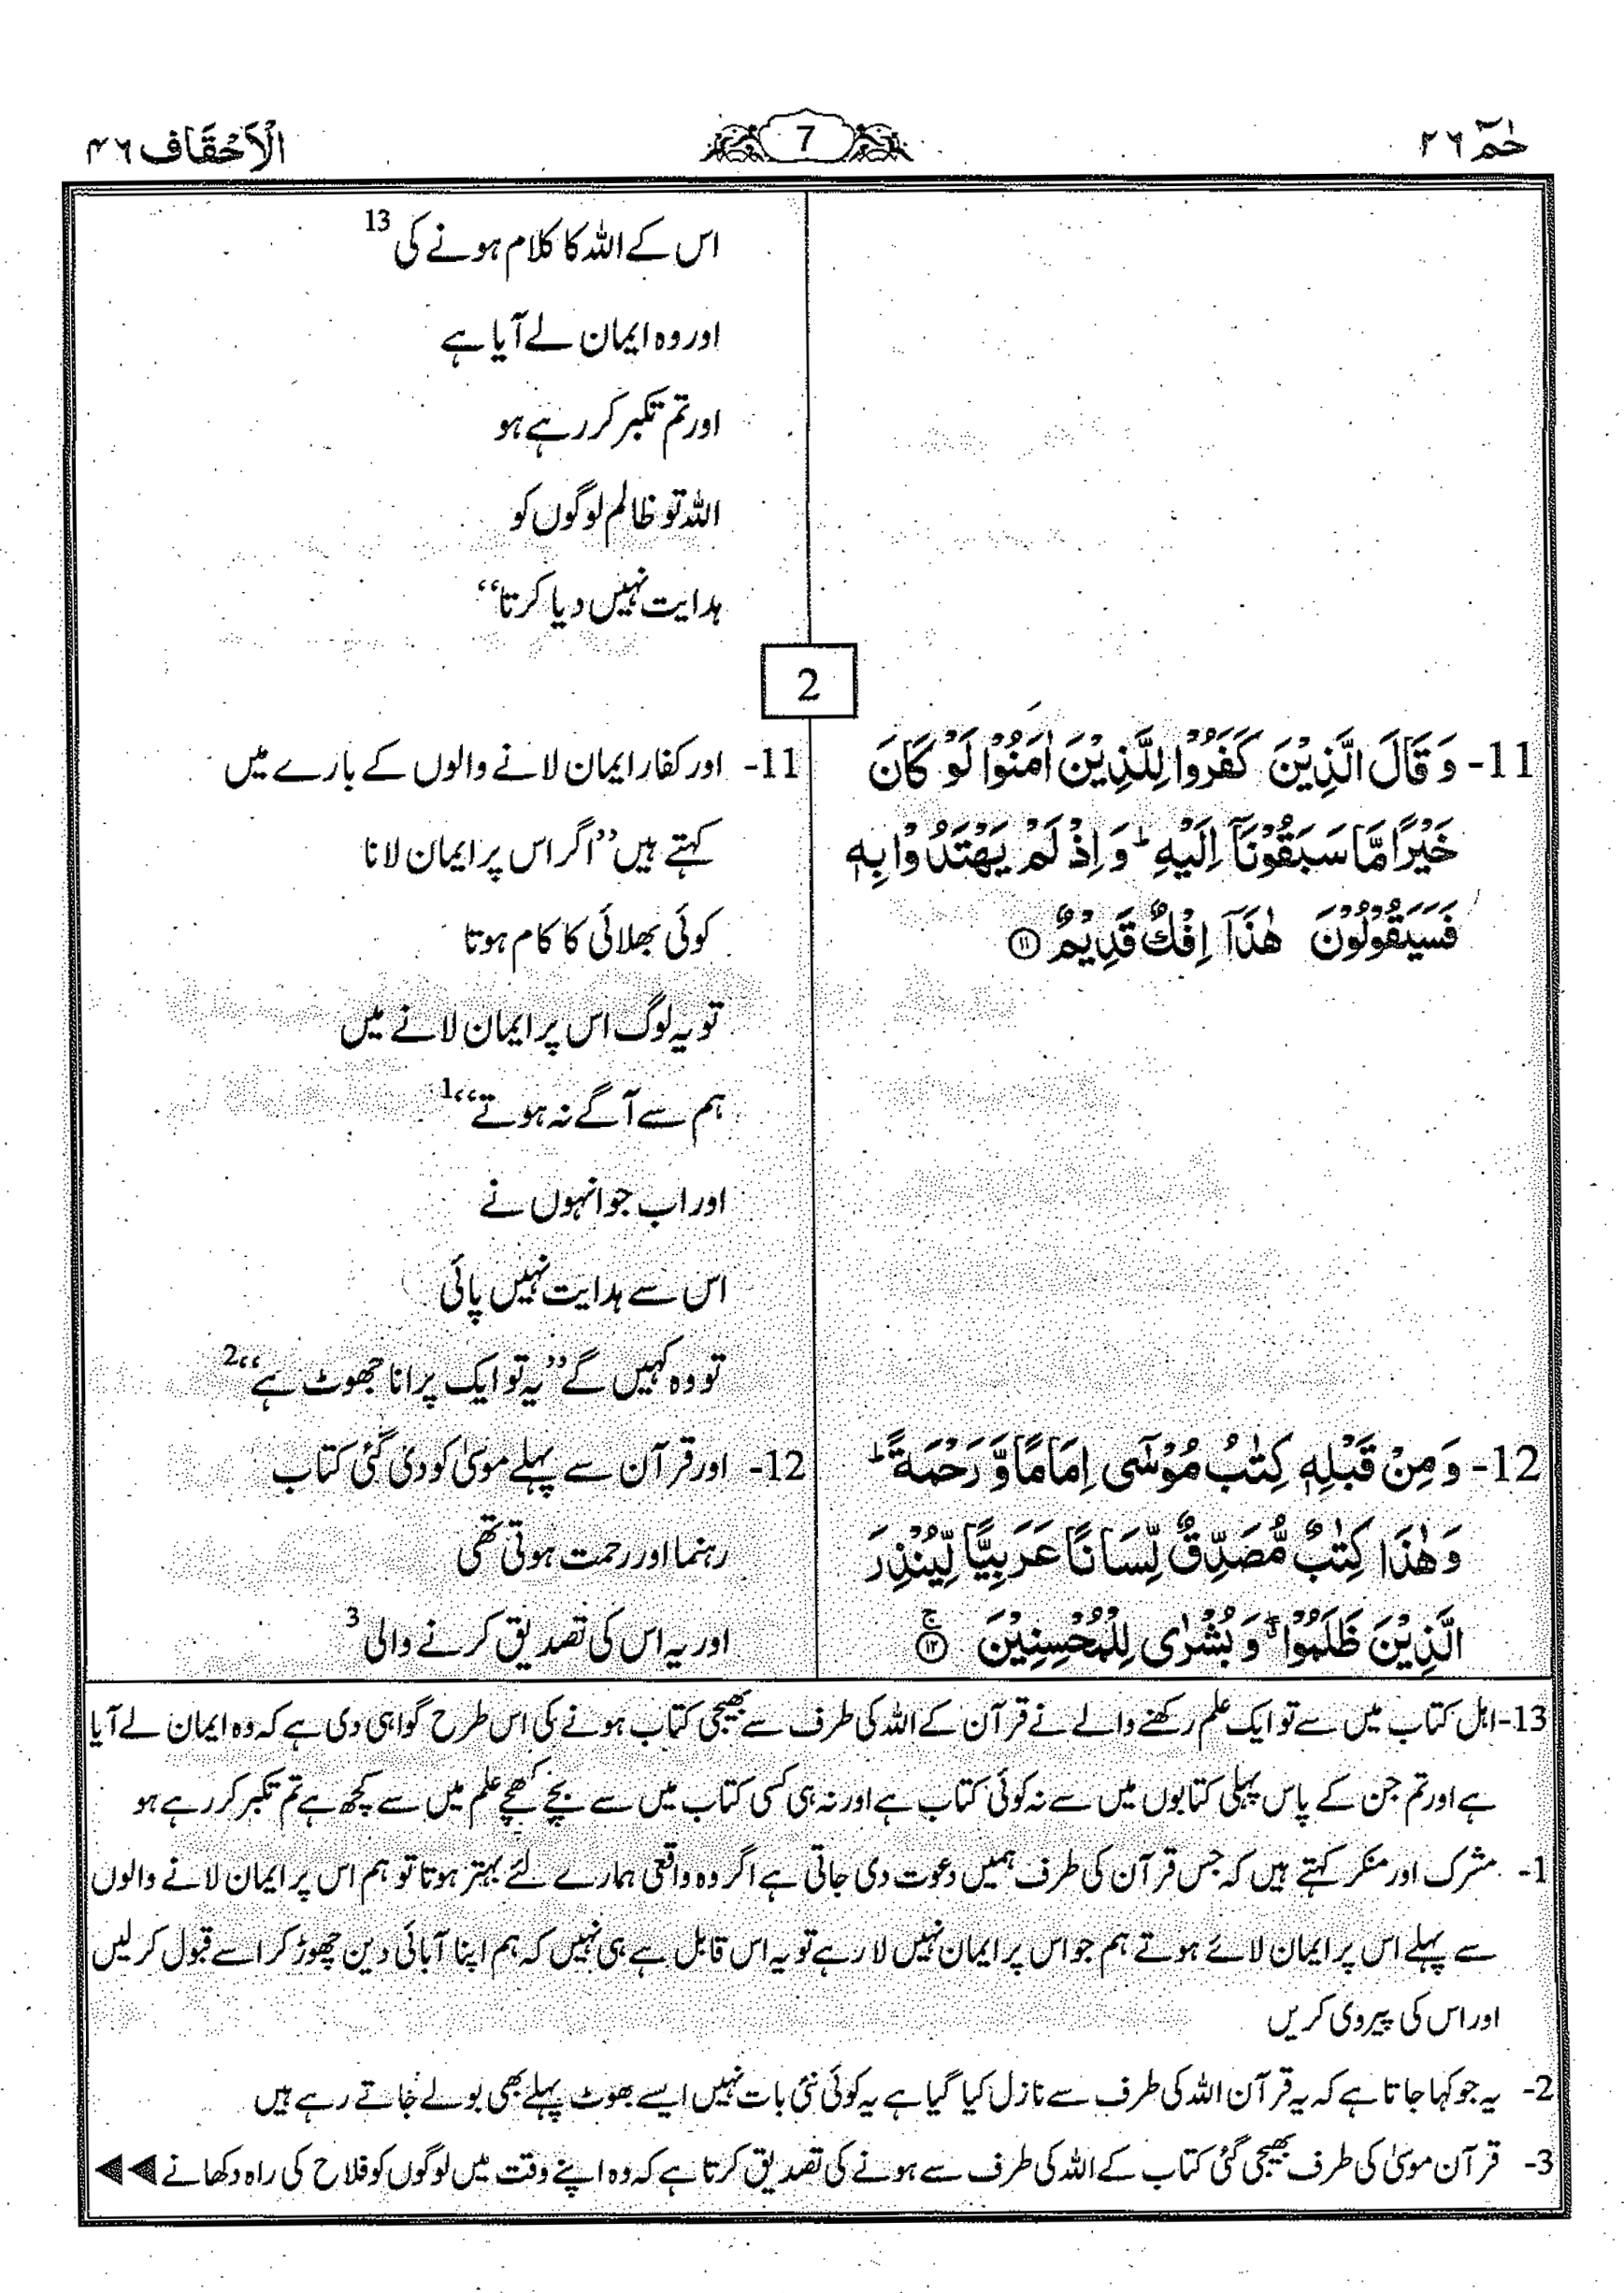 حٰمٓ ۲۶
7
الْاَحْقَاف ۴۶
اس کے اللہ کا کلام ہونے کی 13
اور وہ ایمان لے آیا ہے
اور تم تکبر کر رہے ہو
اللہ تو ظالم لوگوں کو
ہدایت نہیں دیا کرتا‘‘
2
11- وَ قَالَ الَّذِیْنَ كَفَرُوْا لِلَّذِیْنَ اٰمَنُوْا لَوْ كَانَ
خَیْرًا مَّا سَبَقُوْنَاۤ اِلَیْهِ ؕ وَ اِذْ لَمْ یَهْتَدُوْا بِهٖ
فَسَیَقُوْلُوْنَ هٰذَاۤ اِفْكٌ قَدِیْمٌ ۝۱۱
11- اور کفار ایمان لانے والوں کے بارے میں
کہتے ہیں ’’اگر اس پر ایمان لانا
کوئی بھلائی کا کام ہوتا
تو یہ لوگ اس پر ایمان لانے میں
ہم سے آگے نہ ہوتے‘‘ 1
اور اب جو انہوں نے
اس سے ہدایت نہیں پائی
تو وہ کہیں گے ’’یہ تو ایک پرانا جھوٹ ہے‘‘ 2
12- وَ مِنْ قَبْلِهٖ كِتٰبُ مُوْسٰۤی اِمَامًا وَّ رَحْمَةً ؕ
وَ هٰذَا كِتٰبٌ مُّصَدِّقٌ لِّسَانًا عَرَبِیًّا لِّیُنْذِرَ
الَّذِیْنَ ظَلَمُوْا ۖۗ وَ بُشْرٰی لِلْمُحْسِنِیْنَ ۝۱۲ ج
12- اور قرآن سے پہلے موسیٰ کو دی گئی کتاب
رہنما اور رحمت ہوتی تھی
اور یہ اس کی تصدیق کرنے والی 3
13- اہل کتاب میں سے تو ایک علم رکھنے والے نے قرآن کے اللہ کی طرف سے بھیجی کتاب ہونے کی اس طرح گواہی دی ہے کہ وہ ایمان لے آیا
ہے اور تم جن کے پاس پہلی کتابوں میں سے نہ کوئی کتاب ہے اور نہ ہی کسی کتاب میں سے بچے کھچے علم میں سے کچھ ہے تم تکبر کر رہے ہو
1- مشرک اور منکر کہتے ہیں کہ جس قرآن کی طرف ہمیں دعوت دی جاتی ہے اگر وہ واقعی ہمارے لئے بہتر ہوتا تو ہم اس پر ایمان لانے والوں
سے پہلے اس پر ایمان لائے ہوتے ہم جو اس پر ایمان نہیں لا رہے تو یہ اس قابل ہے ہی نہیں کہ ہم اپنا آبائی دین چھوڑ کر اسے قبول کر لیں
اور اس کی پیروی کریں
2- یہ جو کہا جاتا ہے کہ یہ قرآن اللہ کی طرف سے نازل کیا گیا ہے یہ کوئی نئی بات نہیں ایسے جھوٹ پہلے بھی بولے جاتے رہے ہیں
3- قرآن موسیٰ کی طرف بھیجی گئی کتاب کے اللہ کی طرف سے ہونے کی تصدیق کرتا ہے کہ وہ اپنے وقت میں لوگوں کو فلاح کی راہ دکھانے ◀◀